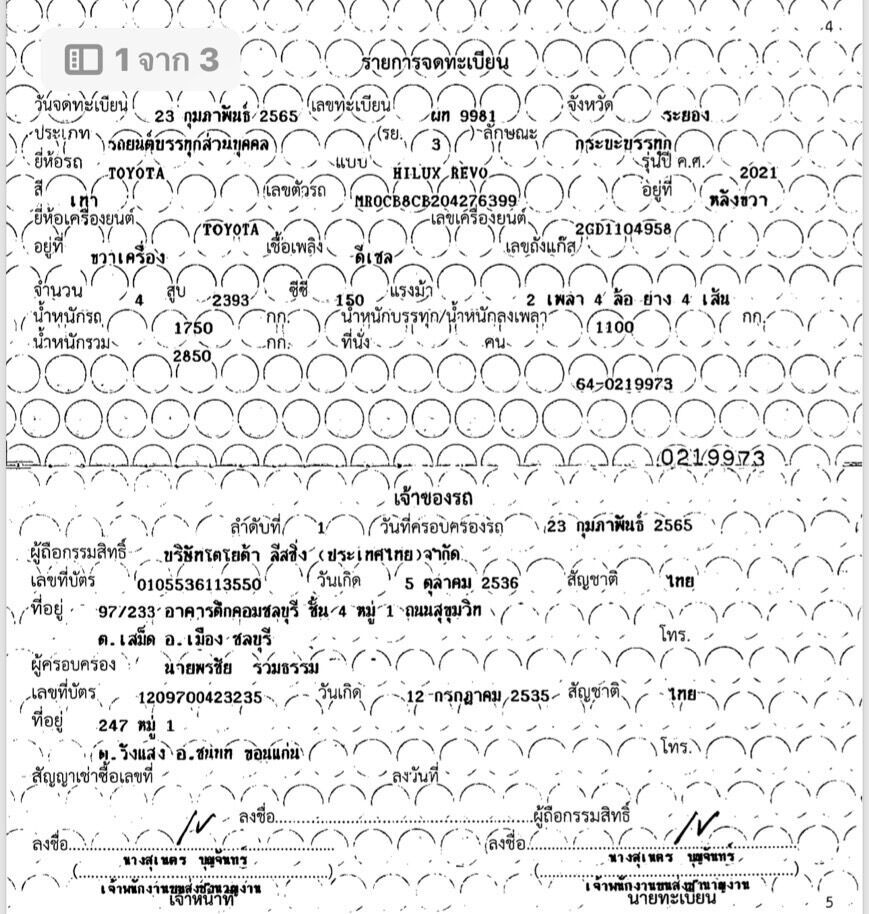 4
1 จาก 3
รายการจดทะเบียน
วันจดทะเบียน 23 กุมภาพันธ์ 2565 เลขทะเบียน ผท 9981 จังหวัด ระยอง
ประเภท รถยนต์บรรทุกส่วนบุคคล (รย. 3 ) ลักษณะ กระบะบรรทุก
ยี่ห้อรถ TOYOTA แบบ HILUX REVO รุ่นปี ค.ศ. 2021
สี เทา เลขตัวรถ MR0CB8CB204276399 อยู่ที่ หลังขวา
ยี่ห้อเครื่องยนต์ TOYOTA เลขเครื่องยนต์ 2GD1104958
อยู่ที่ ขวาเครื่อง เชื้อเพลิง ดีเซล เลขถังแก๊ส
จำนวน 4 สูบ 2393 ซีซี 150 แรงม้า 2 เพลา 4 ล้อ ยาง 4 เส้น
น้ำหนักรถ 1750 กก. น้ำหนักบรรทุก/น้ำหนักลงเพลา 1100 กก.
น้ำหนักรวม 2850 กก. ที่นั่ง คน
64-0219973
0219973
เจ้าของรถ
ลำดับที่ 1 วันที่ครอบครองรถ 23 กุมภาพันธ์ 2565
ผู้ถือกรรมสิทธิ์ บริษัทโตโยต้า ลีสซิ่ง (ประเทศไทย)จำกัด
เลขที่บัตร 0105536113550 วันเกิด 5 ตุลาคม 2536 สัญชาติ ไทย
ที่อยู่ 97/233 อาคารตึกคอมชลบุรี ชั้น 4 หมู่ 1 ถนนสุขุมวิท
ต.เสม็ด อ.เมือง ชลบุรี โทร.
ผู้ครอบครอง นายพรชัย รวมธรรม
เลขที่บัตร 1209700423235 วันเกิด 12 กรกฎาคม 2535 สัญชาติ ไทย
ที่อยู่ 247 หมู่ 1
ต.วังแสง อ.ชนบท ขอนแก่น โทร.
สัญญาเช่าซื้อเลขที่ ลงวันที่
ลงชื่อ ผู้ถือกรรมสิทธิ์
ลงชื่อ ลงชื่อ
นางสุเนตร บุญจันทร์ นางสุเนตร บุญจันทร์
เจ้าพนักงานขนส่งชำนาญงาน เจ้าพนักงานขนส่งชำนาญงาน
เจ้าหน้าที่ นายทะเบียน
5